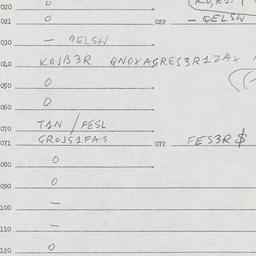 020 0
021 0 022 — QELSW
030 — QELSW
040 KOJB3R QNOXAGRES3R1ZAX
050 0
060 0
070 TAN / PESL
071 GROJS1FAS 072 FES3R $
080 0
090 0
100 —
110 —
120 0